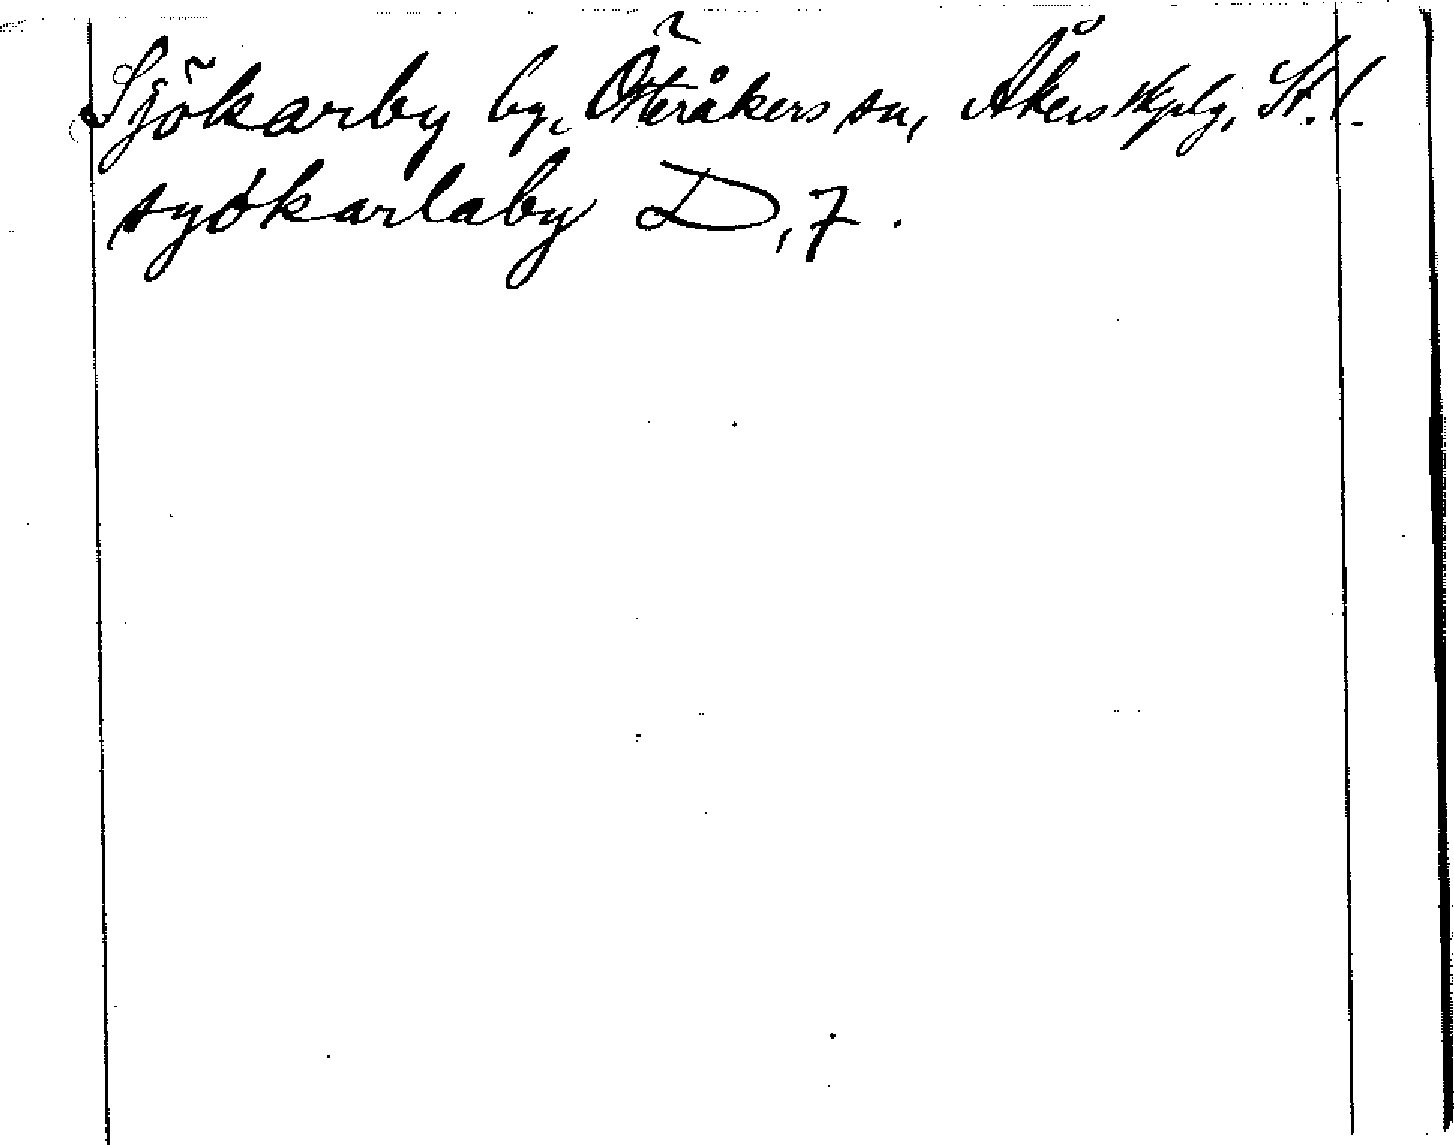 Sjökarby by, Österåkers sn, Åkers skplg, St. l.
syókarlaby D, 7.